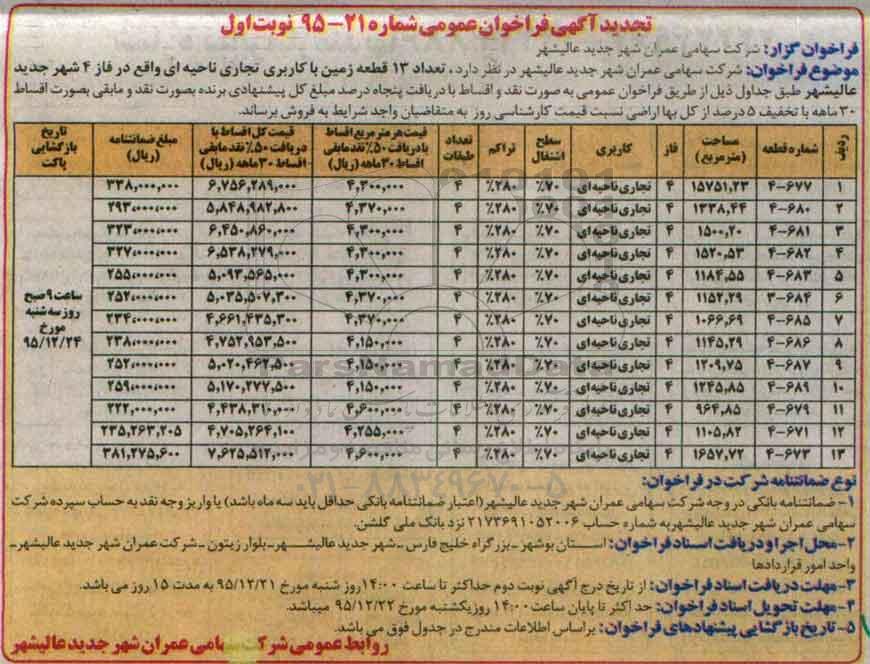 تجدید آگهی فراخوان عمومی شماره ۲۱-۹۵ نوبت اول
فراخوان گزار: شرکت سهامی عمران شهر جدید عالیشهر
موضوع فراخوان: شرکت سهامی عمران شهر جدید عالیشهر در نظر دارد، تعداد ۱۳ قطعه زمین با کاربری تجاری ناحیه ای واقع در فاز ۴ شهر جدید
عالیشهر طبق جداول ذیل از طریق فراخوان عمومی به صورت نقد و اقساط با دریافت پنجاه درصد مبلغ کل پیشنهادی برنده بصورت نقد و مابقی بصورت اقساط
۳۰ ماهه با تخفیف ۵ درصد از کل بها اراضی نسبت قیمت کارشناسی روز به متقاضیان واجد شرایط به فروش برساند.
ردیف شماره قطعه مساحت (مترمربع) فاز کاربری سطح اشتغال تراکم تعداد طبقات قیمت هر متر مربع اقساط با دریافت ۵۰٪ نقد مابقی اقساط ۳۰ ماهه (ریال) قیمت کل اقساط با دریافت ۵۰٪ نقد مابقی اقساط ۳۰ ماهه (ریال) مبلغ ضمانتنامه (ریال) تاریخ بازگشایی پاکت
۱ ۴-۶۷۷ ۱۵۷۵۱,۲۳ ۴ تجاری ناحیه ای ۷۰٪ ۲۸۰٪ ۴ ۴,۳۰۰,۰۰۰ ۶,۷۵۶,۲۸۹,۰۰۰ ۳۳۸,۰۰۰,۰۰۰
۲ ۴-۶۸۰ ۱۳۳۸,۴۴ ۴ تجاری ناحیه ای ۷۰٪ ۲۸۰٪ ۴ ۴,۳۷۰,۰۰۰ ۵,۸۴۸,۹۸۲,۸۰۰ ۲۹۳,۰۰۰,۰۰۰
۳ ۴-۶۸۱ ۱۵۰۰,۲۰ ۴ تجاری ناحیه ای ۷۰٪ ۲۸۰٪ ۴ ۴,۳۰۰,۰۰۰ ۶,۴۵۰,۸۶۰,۰۰۰ ۳۲۳,۰۰۰,۰۰۰
۴ ۴-۶۸۲ ۱۵۲۰,۵۳ ۴ تجاری ناحیه ای ۷۰٪ ۲۸۰٪ ۴ ۴,۳۰۰,۰۰۰ ۶,۵۳۸,۲۷۹,۰۰۰ ۳۲۷,۰۰۰,۰۰۰
۵ ۴-۶۸۳ ۱۱۸۴,۵۵ ۴ تجاری ناحیه ای ۷۰٪ ۲۸۰٪ ۴ ۴,۳۰۰,۰۰۰ ۵,۰۹۳,۵۶۵,۰۰۰ ۲۵۵,۰۰۰,۰۰۰
۶ ۳-۶۸۴ ۱۱۵۲,۲۹ ۴ تجاری ناحیه ای ۷۰٪ ۲۸۰٪ ۴ ۴,۳۷۰,۰۰۰ ۵,۰۳۵,۵۰۷,۳۰۰ ۲۵۲,۰۰۰,۰۰۰
۷ ۴-۶۸۵ ۱۰۶۶,۶۹ ۴ تجاری ناحیه ای ۷۰٪ ۲۸۰٪ ۴ ۴,۳۷۰,۰۰۰ ۴,۶۶۱,۴۳۵,۳۰۰ ۲۳۴,۰۰۰,۰۰۰
۸ ۴-۶۸۶ ۱۱۴۵,۲۹ ۴ تجاری ناحیه ای ۷۰٪ ۲۸۰٪ ۴ ۴,۱۵۰,۰۰۰ ۴,۷۵۲,۹۵۳,۵۰۰ ۲۳۸,۰۰۰,۰۰۰
۹ ۴-۶۸۷ ۱۲۰۹,۷۵ ۴ تجاری ناحیه ای ۷۰٪ ۲۸۰٪ ۴ ۴,۱۵۰,۰۰۰ ۵,۰۲۰,۴۶۲,۵۰۰ ۲۵۲,۰۰۰,۰۰۰
۱۰ ۴-۶۸۹ ۱۲۴۵,۸۵ ۴ تجاری ناحیه ای ۷۰٪ ۲۸۰٪ ۴ ۴,۱۵۰,۰۰۰ ۵,۱۷۰,۲۷۷,۵۰۰ ۲۵۹,۰۰۰,۰۰۰
۱۱ ۴-۶۷۹ ۹۶۴,۸۵ ۴ تجاری ناحیه ای ۷۰٪ ۲۸۰٪ ۴ ۴,۶۰۰,۰۰۰ ۴,۴۳۸,۳۱۰,۰۰۰ ۲۲۲,۰۰۰,۰۰۰
۱۲ ۴-۶۷۱ ۱۱۰۵,۸۲ ۴ تجاری ناحیه ای ۷۰٪ ۲۸۰٪ ۴ ۴,۲۵۵,۰۰۰ ۴,۷۰۵,۲۶۴,۱۰۰ ۲۳۵,۲۶۳,۲۰۵
۱۳ ۴-۶۷۳ ۱۶۵۷,۷۲ ۴ تجاری ناحیه ای ۷۰٪ ۲۸۰٪ ۴ ۴,۶۰۰,۰۰۰ ۷,۶۲۵,۵۱۲,۰۰۰ ۳۸۱,۲۷۵,۶۰۰
ساعت ۹ صبح
روز سه شنبه
مورخ
۹۵/۱۲/۲۴
نوع ضمانتنامه شرکت در فراخوان:
۱- ضمانتنامه بانکی در وجه شرکت سهامی عمران شهر جدید عالیشهر (اعتبار ضمانتنامه بانکی حداقل باید سه ماه باشد) یا واریز وجه نقد به حساب سپرده شرکت
سهامی عمران شهر جدید عالیشهر به شماره حساب ۲۱۷۳۶۹۱۰۵۲۰۰۶ نزد بانک ملی گلشن.
۲- محل اجرا و دریافت اسناد فراخوان: استان بوشهر - بزرگراه خلیج فارس - شهر جدید عالیشهر - بلوار زیتون - شرکت عمران شهر جدید عالیشهر -
واحد امور قراردادها
۳- مهلت دریافت اسناد فراخوان: از تاریخ درج آگهی نوبت دوم حداکثر تا ساعت ۱۴:۰۰ روز شنبه مورخ ۹۵/۱۲/۲۱ به مدت ۱۵ روز می باشد.
۴- مهلت تحویل اسناد فراخوان: حداکثر تا پایان ساعت ۱۴:۰۰ روز یکشنبه مورخ ۹۵/۱۲/۲۲ میباشد.
۵- تاریخ بازگشایی پیشنهادهای فراخوان: براساس اطلاعات مندرج در جدول فوق می باشد.
روابط عمومی شرکت سهامی عمران شهر جدید عالیشهر
۰۲۱-۸۸۳۴۹۶۷۰-۵